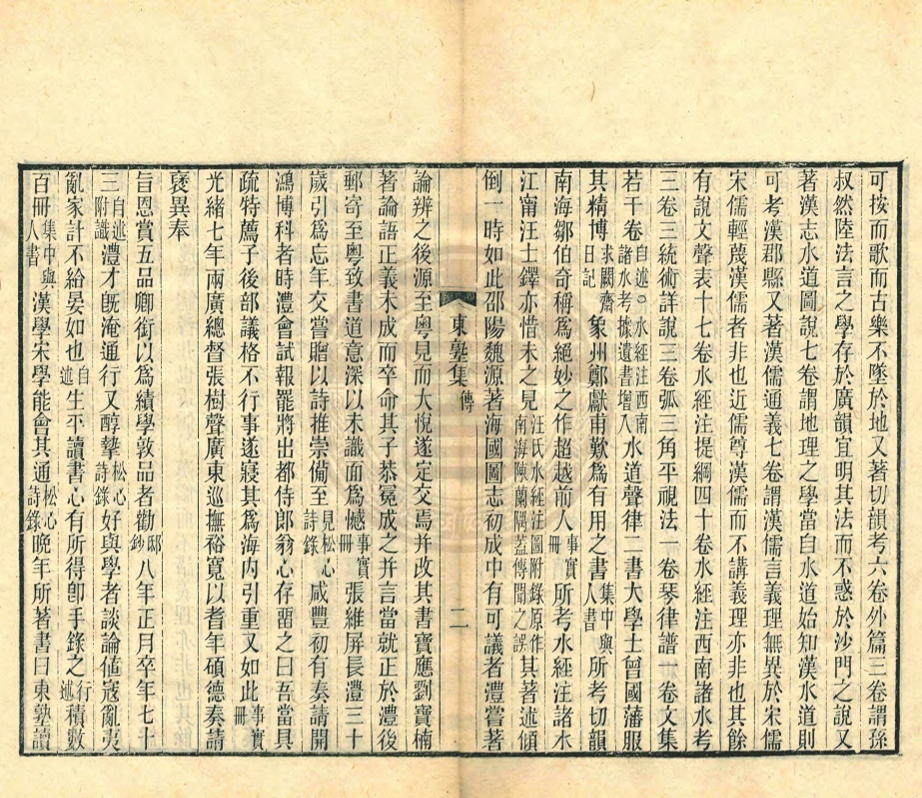 可按而歌而古樂不墜於地又著切韻考六卷外篇三卷謂孫
叔然陸法言之學存於廣韻宜明其法而不惑於沙門之說又
著漢志水道圖說七卷謂地理之學當自水道始知漢水道則
可考漢郡縣又著漢儒通義七卷謂漢儒言義理無異於宋儒
宋儒輕蔑漢儒者非也近儒尊漢儒而不講義理亦非也其餘
有說文聲表十七卷水經注提綱四十卷水經注西南諸水考
三卷三統術詳說三卷弧三角平視法一卷琴律譜一卷文集
若干卷自述○水經注西南諸水考據遺書增入水道聲律二書大學士曾國藩服
其精博求闕齋日記象州鄭獻甫歎爲有用之書集中與人書所考切韻
南海鄒伯奇稱爲絕妙之作超越前人事實冊所考水經注諸水
江甯汪士鐸亦惜未之見汪氏水經注圖附錄原作南海陳蘭隅蓋傳聞之誤其著述傾
倒一時如此邵陽魏源著海國圖志初成中有可議者澧嘗著
東塾集 傳 二
論辨之後源至粵見而大悅遂定交焉并改其書寶應劉寶楠
著論語正義未成而卒命其子恭冕成之并言當就正於澧後
郵寄至粵致書道意深以未識面爲憾事實冊張維屏長澧三十
歲引爲忘年交嘗贈以詩推崇備至見松心詩錄咸豐初有奏請開
鴻博科者時澧會試報罷將出都侍郎翁心存留之曰吾當具
疏特薦子後部議格不行事遂寢其爲海內引重又如此事實冊
光緒七年兩廣總督張樹聲廣東巡撫裕寬以耆年碩德奏請
襃異奉
旨恩賞五品卿銜以爲績學敦品者勸邸鈔八年正月卒年七十
三自述附識澧才旣淹通行又醇摯松心詩錄好與學者談論値寇亂夷
亂家計不給晏如也自述生平讀書心有所得卽手錄之行述積數
百冊集中與人書漢學宋學能會其通松心詩錄晚年所著書曰東塾讀